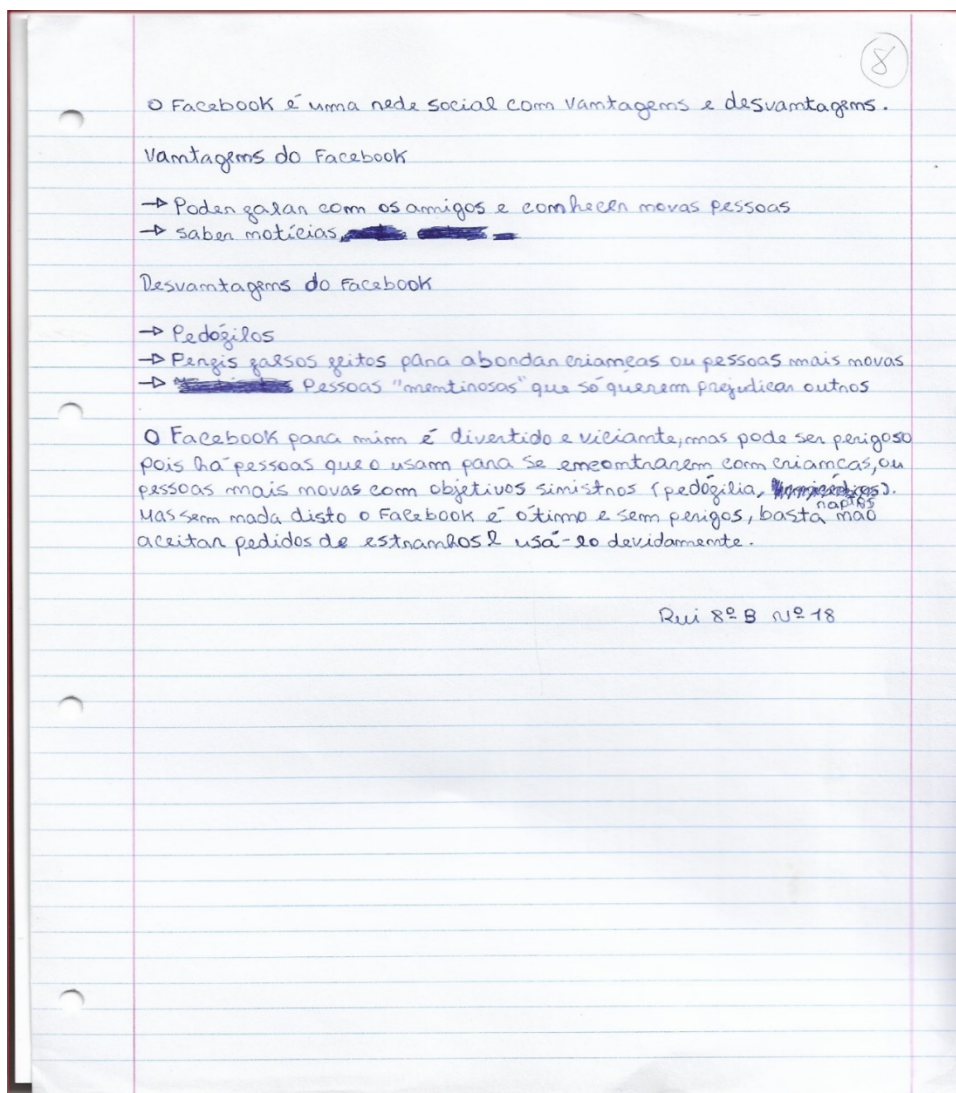 8
O Facebook é uma rede social com vantagens e desvantagens.
Vantagens do Facebook
→ Poder falar com os amigos e conhecer novas pessoas
→ saber notícias
Desvantagens do Facebook
→ Pedófilos
→ Perfis falsos feitos para abordar crianças ou pessoas mais novas
→ Pessoas "mentirosas" que só querem prejudicar outros
O Facebook para mim é divertido e viciante, mas pode ser perigoso
pois há pessoas que o usam para se encontrarem com criancas, ou
pessoas mais novas com objetivos sinistros (pedófilia, raptos).
Mas sem nada disto o Facebook é ótimo e sem perigos, basta não
aceitar pedidos de estranhos e usá-lo devidamente.
Rui 8º B Nº 18